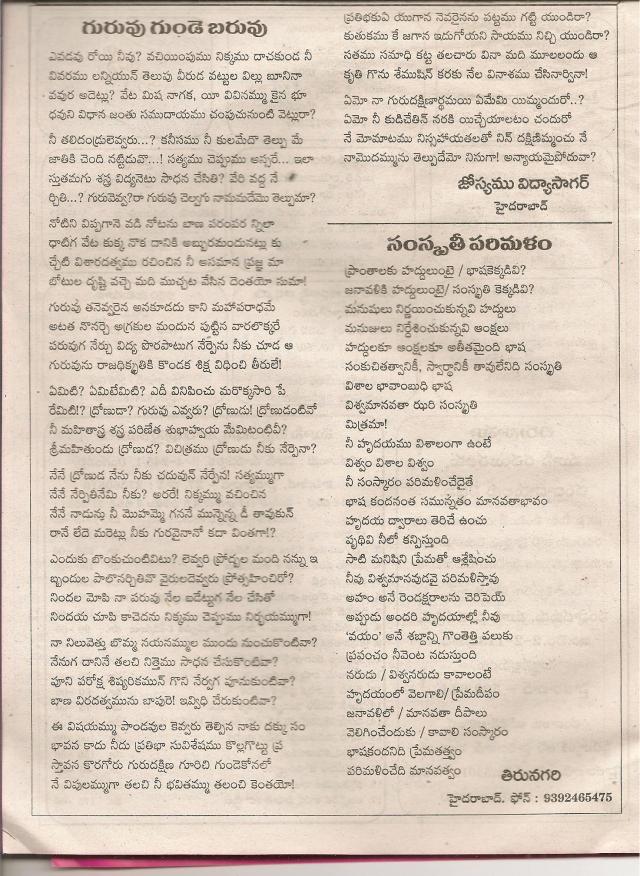 గురువు గుండె బరువు
ఎవడవు రోయి నీవు? వచియింపుము నిక్కము దాచకుండ నీ
వివరము లన్నియున్ తెలుపు వీరుడ వట్టుల విల్లు బూనినా
వవుర అదెట్లు? వేట మిష నాగక, యీ వివినమ్ము కైన భూ
ధవుని విధాన జంతు సముదాయము చంపుచునుంటె వెట్లురా?
నీ తలిదండ్రులెవ్వరు...? కనీసము నీ కులమేదొ తెల్పు మే
జాతికి చెంది నట్టిదువొ...! సత్యము చెప్పుము అస్సరే... ఇలా
స్తుతమగు శస్త్ర విద్యనెటు సాధన చేసితి? వేరి వద్ద నే
ర్చితి...? గురువెవ్వ?రా గురువు చెల్వగు నామమదేమొ తెల్పుమా?
నోటిని విప్పగానె వడి నోటను బాణ పరంపర న్నిలా
ధాటిగ వేట కుక్క నొక దానికి అబ్బురమందునట్లు కు
చ్చేటి విశారదత్వము రచించిన నీ అసమాన ప్రజ్ఞ మా
బోటుల దృష్టి వచ్చె మది ముచ్చట వేసిన దెంతయో సుమా!
గురువు తనెవ్వరైన అనకూడదు కాని మహాపరాధమే
అటత నొనర్చె అగ్రకుల మందున పుట్టిన వారలొక్కరే
పరువుగ నేర్చు విద్య పొరపాటుగ నేర్పెను నీకు చూడ ఆ
గురువును రాజధిక్కృతికి కొండక శిక్ష విధించి తీరులే!
ఏమిటి? ఏమిటేమిటి? ఎదీ వినిపించు మరొక్కసారి పే
రేమిటి!? ద్రోణుడా? గురువు ఎవ్వరు? ద్రోణుడు! ద్రోణుడంటివో
నీ మహితాస్త్ర శస్త్ర పరిణేత శుభాహ్వయ మేమిటంటివీ?
శ్రీమహితుండు ద్రోణుడ? విచిత్రము ద్రోణుడు నీకు నేర్పెనా?
నేనే ద్రోణుడ నేను నీకు చదువున్ నేర్పేన! సత్యమ్ముగా
నేనే నేర్పితినేమి నీకు? అరరే! నిక్కమ్ము వచించిన
నేనే నాడును నీ మొహమ్మె గననే మున్నెన్న డీ తావుకున్
రానే లేదె మరెట్లు నీకు గురవైనానో కదా వింతగా!?
ఎందుకు బొంకుచుంటివిటు? లెవ్వరి ప్రోద్బల మంది నన్ను ఇ
బ్బందుల పాలొనర్చితివొ వైరులదెవ్వరు ప్రోత్సహించిరో?
నిందల మోపి నా పరువు నేల ఐడెట్టుగ నేల చేసితో
నిందయ చూపి కాచెదను నిక్కము చెప్పుము నిర్భయమ్ముగా!
నా నిలువెత్తు బొమ్మ నయనమ్ముల ముందు నుంచుకొంటివా?
నేనుగ దానినే తలచి నిత్తెము సాధన చేసుకొంటివా?
పూని పరోక్ష శిష్యరికమున్ గొని నేర్వగ పూనుకుంటివా?
బాణ విరదత్వమును బాపురె! ఇవ్విధి చేరుకుంటివా?
ఈ విషయమ్ము పాండవుల కెవ్వరు తెల్పిన నాకు దక్కు సం
భావన కాదు నీదు ప్రతిభా సువిశేషము కొల్లగొట్టు ప్ర
స్తావన కొరగోరు గురుదక్షిణ గూరిచి గుండెకోనలో
నే విపులమ్ముగా తలచి నీ భవితమ్ము తలంచి కెంతయో!
ప్రతిభకుఏ యుగాన నెవరైనను పట్టము గట్టి యుండిరా?
కుతుకము కే జగాన ఇదుగోయని సాయము నిచ్చి యుండిరా?
సతము సమాధి కట్ట తలచారు వినా మది మూలలందు ఆ
కృతి గొను శేముషిన్ కరకు నేల వినాశము చేసినార్వినా!
ఏమో నా గురుదక్షిణార్థమయి ఏమేమి యిమ్మందురో..?
ఏమో నీ కుడిచేతిన్ నరకి యిచ్చేయాలటం చందురో
నే మోమాటము నిస్సహాయతలతో నిన్ దక్షిణిమ్మంచు నే
నామొదమ్మును తెల్పదేమో నినుగా! అన్యాయమైపోదువా?
జోస్యము విద్యాసాగర్
హైదరాబాద్
సంస్కృతీ పరిమళం
ప్రాంతాలకు హద్దులుంటై / భాషకెక్కడివి?
జనావళికి హద్దులుంటై/ సంస్కృతి కెక్కడివి?
మనుషులు నిర్ణయించుకున్నవి హద్దులు
మనుజులు నిర్దేశించుకున్నవి ఆంక్షలు
హద్దులకూ ఆంక్షలకూ అతీతమైంది భాష
సంకుచితత్వానికీ, స్వార్థానికీ తావులేనిది సంస్కృతి
విశాల భావాంబుధి భాష
విశ్వమానవతా ఝరి సంస్కృతి
మిత్రమా!
నీ హృదయము విశాలంగా ఉంటే
విశ్వం విశాల విశ్వం
నీ సంస్కారం పరిమళించేదైతే
భాష కందనంత సమున్నతం మానవతాభావం
హృదయ ద్వారాలు తెరిచే ఉంచు
పృథివి నీలో కన్పిస్తుంది
సాటి మనిషిని ప్రేమతో ఆశ్లేషించు
నీవు విశ్వమానవుడవై పరిమళిస్తావు
అహం అనే రెండక్షరాలను చెరిపెయ్
అప్పుడు అందరి హృదయాల్లో నీవు
'వయం' అనే శబ్దాన్ని గొంతెత్తి పలుకు
ప్రపంచం నీవెంట నడుస్తుంది
నరుడు / విశ్వనరుడు కావాలంటే
హృదయంలో వెలగాలి/ ప్రేమదీపం
జనావళిలో / మానవతా దీపాలు
వెలిగించేందుకు / కావాలి సంస్కారం
భాషకందనిది ప్రేమతత్త్వం
పరిమళించేది మానవత్వం
తిరునగరి
హైదరాబాద్. ఫోన్ : 9392465475